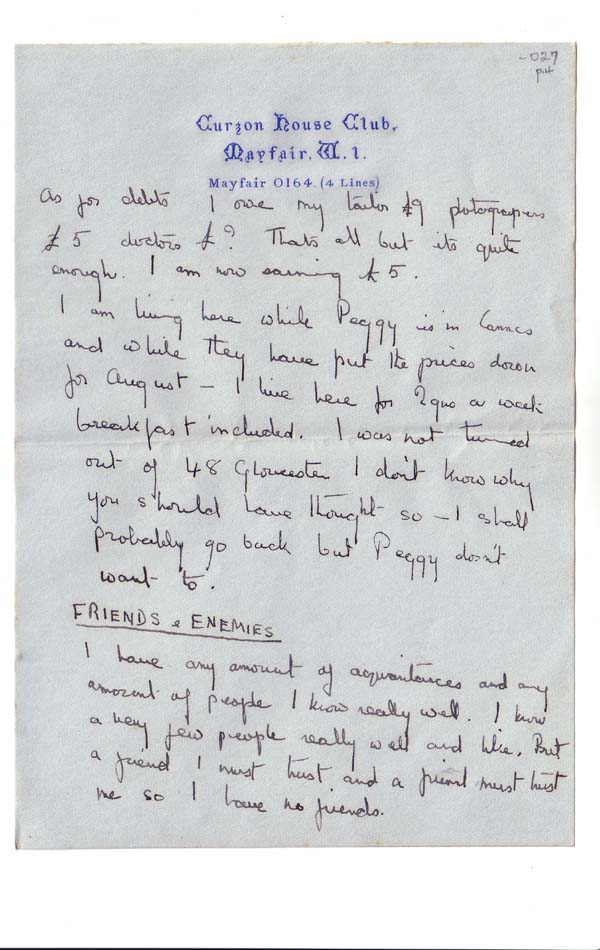 -027
pt4
Curzon House Club,
Mayfair, W.1.
Mayfair 0164. (4 Lines)
As for debts I owe my tailor £9 potograpers
£5 doctors £? Thats all but its quite
enough. I am now earning £5.
I am living here while Peggy is in Cannes
and while they have put the prices down
for August – I live here for 2gns a week
breakfast included. I was not turned
out of 48 Gloucester I don't know why
you should have thought so – I shall
probably go back but Peggy dosn't
want to.
FRIENDS & ENEMIES
I have any amount of aquaintances and any
amount of people I know really well. I know
a very few people really well and like. But
a friend I must trust and a friend must trust
me so I have no friends.